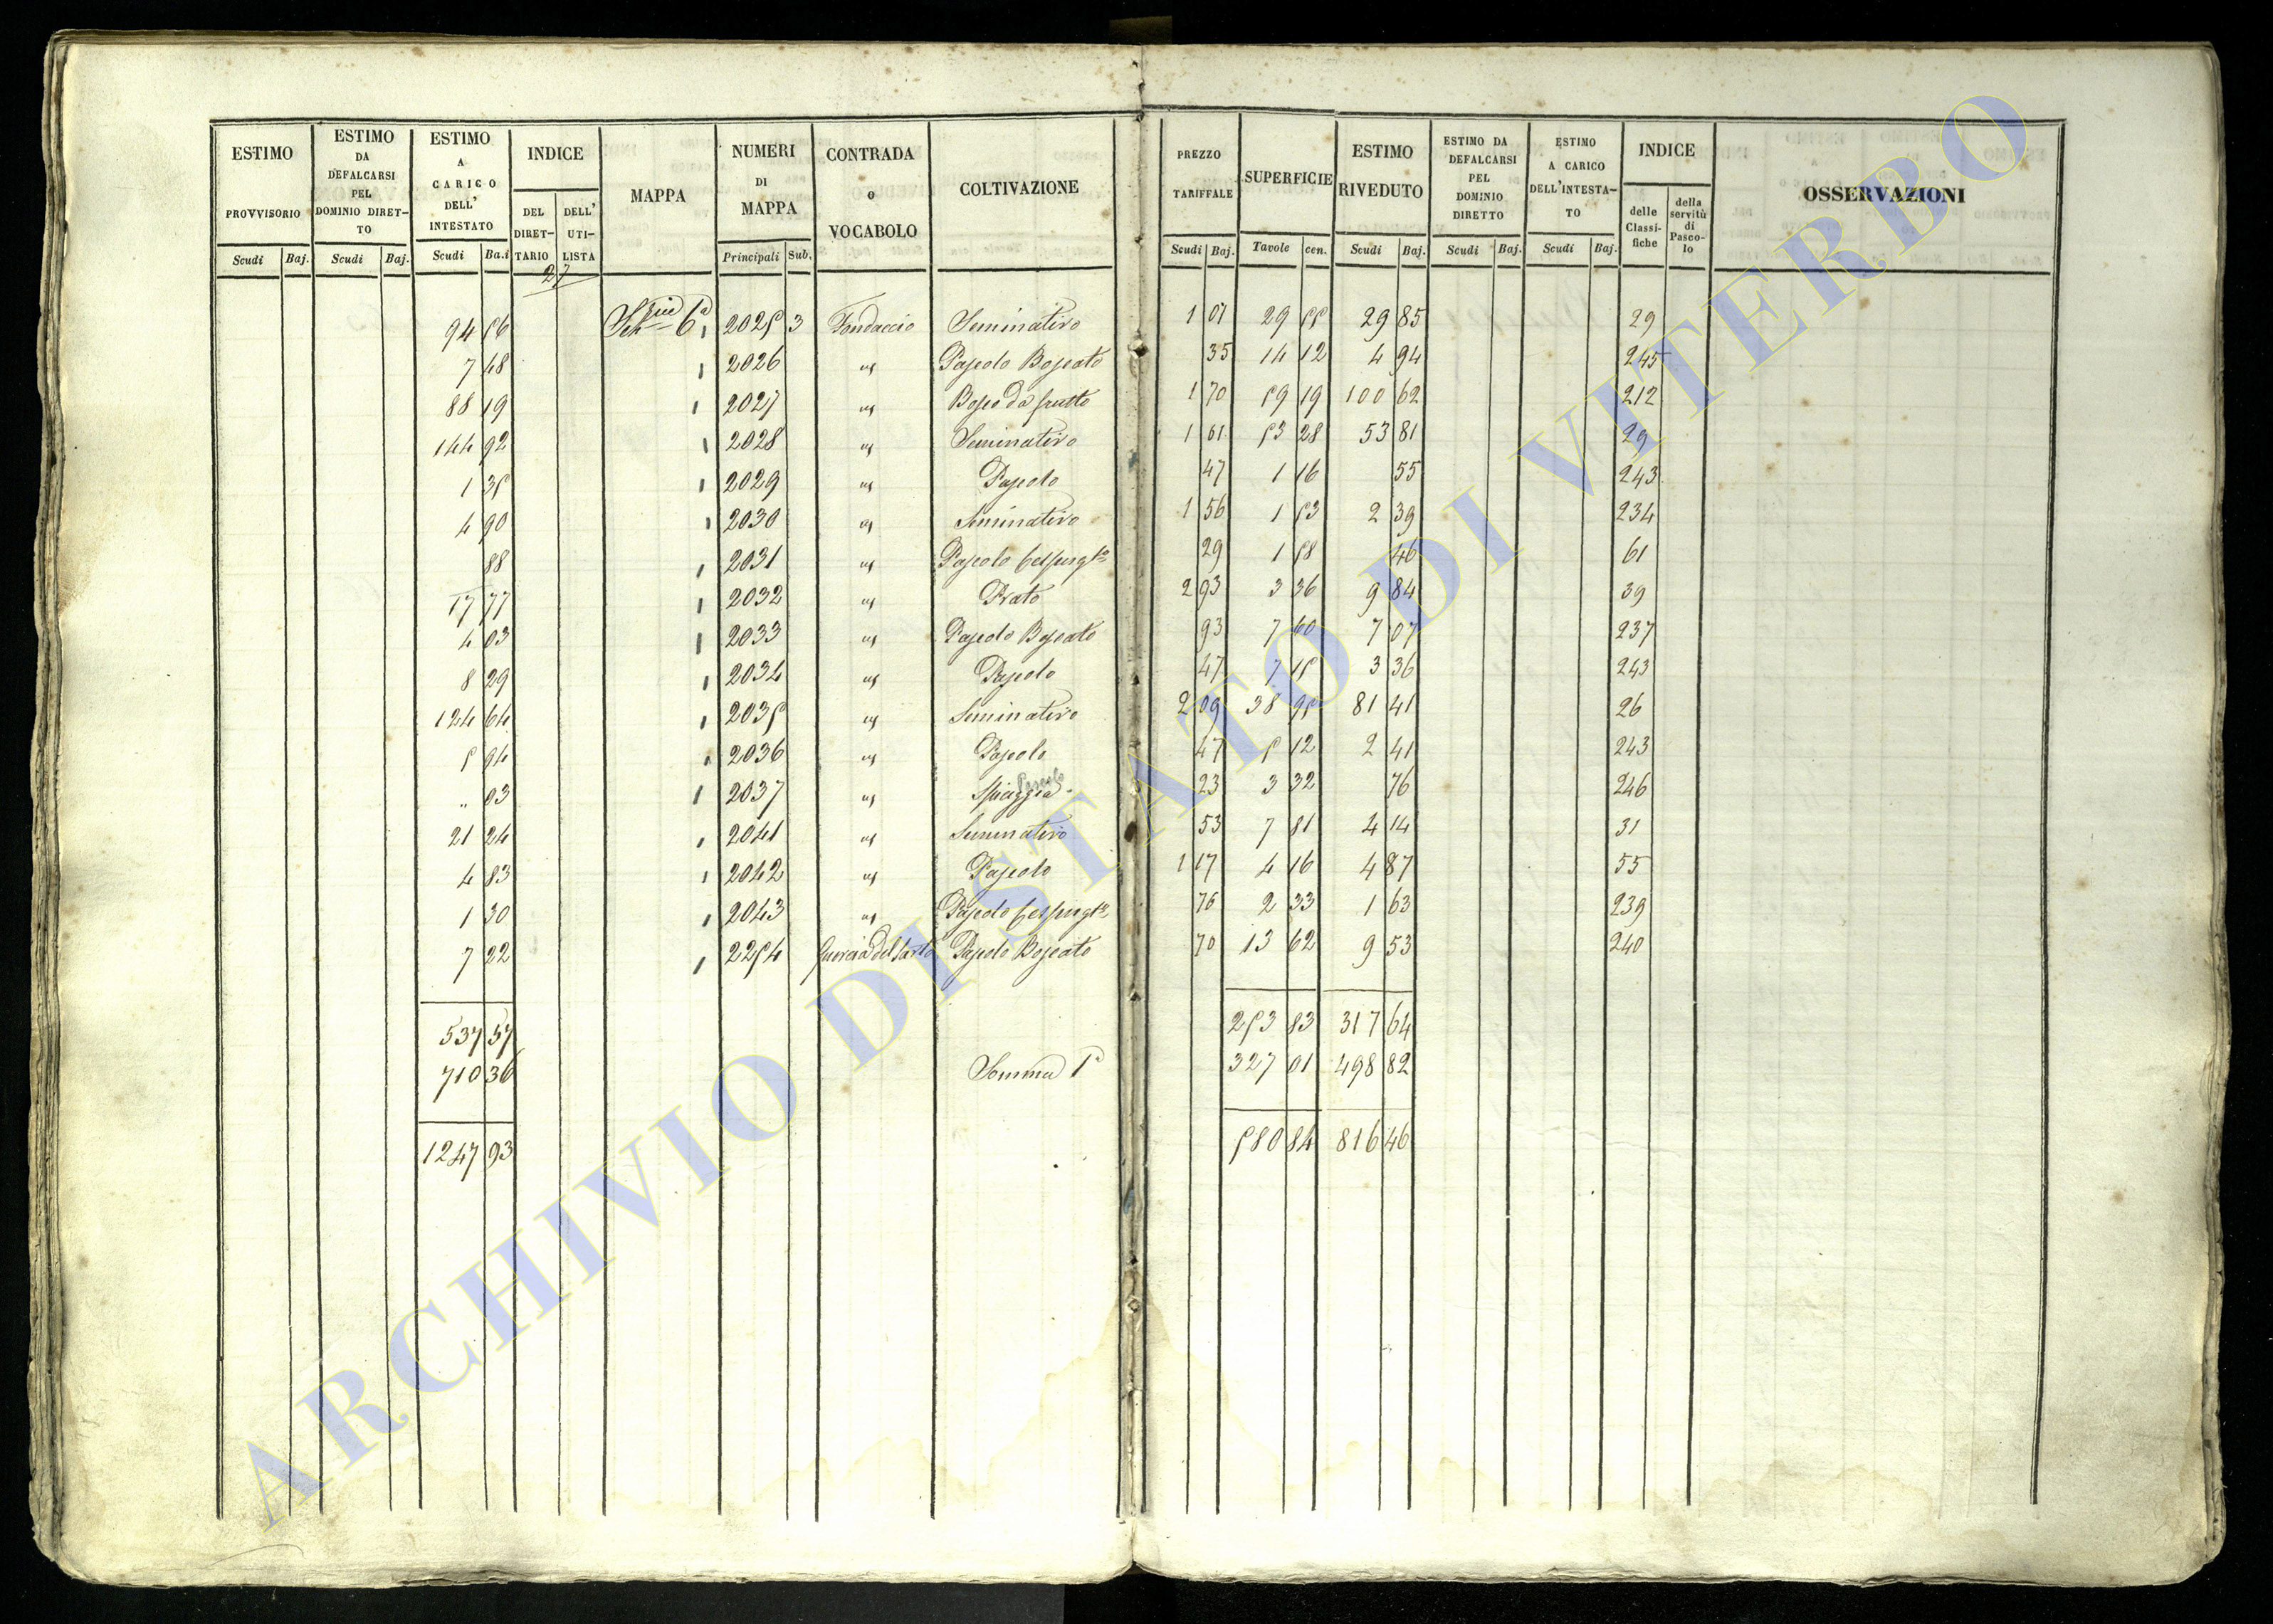 ESTIMO PROVVISORIO Scudi Baj.
ESTIMO DA DEFALCARSI PEL DOMINIO DIRETTO Scudi Baj.
ESTIMO A CARICO DELL' INTESTATO Scudi Ba.i
INDICE DEL DIRETTARIO DELL' UTILISTA
MAPPA
NUMERI DI MAPPA Principali Sub.
CONTRADA o VOCABOLO
COLTIVAZIONE
PREZZO TARIFFALE Scudi Baj.
SUPERFICIE Tavole cen.
ESTIMO RIVEDUTO Scudi Baj.
ESTIMO DA DEFALCARSI PEL DOMINIO DIRETTO Scudi Baj.
ESTIMO A CARICO DELL'INTESTATO Scudi Baj.
INDICE delle Classifiche della servitù di Pascolo
OSSERVAZIONI
27
94 56 6a 2025 3 Fondaccio Seminativo 1 01 29 55 29 85 29
7 48 2026 Pascolo Boscato 35 14 12 4 94 245
88 19 2027 Bosco da frutto 1 70 59 19 100 62 212
144 92 2028 Seminativo 1 01 53 28 53 81 29
1 35 2029 Pascolo 47 1 16 55 243
4 90 2030 Seminativo 1 56 1 53 2 39 234
88 2031 Pascolo 29 1 58 46 61
17 77 2032 Prato 2 93 3 36 9 84 39
4 03 2033 Pascolo Boscato 93 7 60 7 07 237
8 29 2034 Pascolo 47 7 15 3 36 243
124 64 2035 Seminativo 2 09 38 95 81 41 26
5 94 2036 Pascolo 47 5 12 2 41 243
" 03 2037 Spiaggia Pascolo 23 3 32 76 246
21 24 2041 Seminativo 53 7 81 4 14 31
4 83 2042 Pascolo 1 17 4 16 4 87 55
1 30 2043 Pascolo 70 2 33 1 63 239
7 22 2254 Quercia del Sarto Pascolo Boscato 70 13 62 9 53 240
537 57 253 83 317 64
710 36 Somma 1a 327 01 498 82
1247 93 580 84 816 46
ARCHIVIO DI STATO DI VITERBO